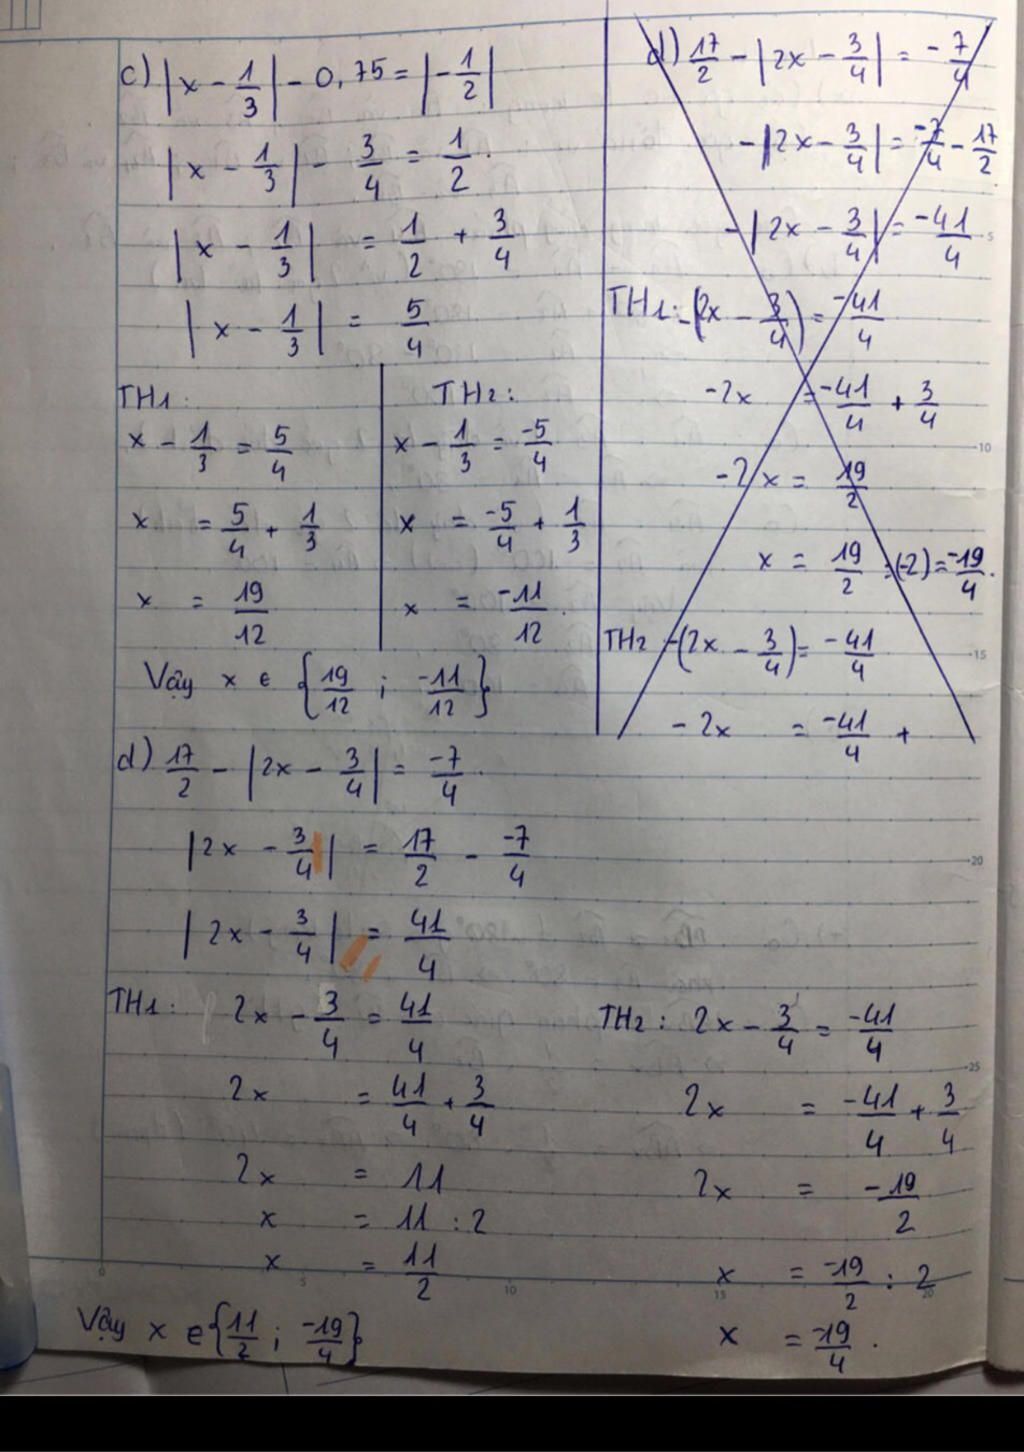 c) |x - 1/3| - 0,75 = |-1/2|
|x - 1/3| - 3/4 = 1/2.
|x - 1/3| = 1/2 + 3/4
|x - 1/3| = 5/4
TH1:
x - 1/3 = 5/4
x = 5/4 + 1/3
x = 19/12
TH2:
x - 1/3 = -5/4
x = -5/4 + 1/3
x = -11/12.
Vậy x ∈ {19/12 ; -11/12}
d) 17/2 - |2x - 3/4| = -7/4
-|2x - 3/4| = -7/4 - 17/2
-|2x - 3/4| = -41/4
TH1: -(2x - 3/4) = -41/4
-2x = -41/4 + 3/4
-2x = 19/2
x = 19/2 : (-2) = -19/4.
TH2 -(2x - 3/4) = -41/4
-2x = -41/4 +
d) 17/2 - |2x - 3/4| = -7/4.
|2x - 3/4| = 17/2 - -7/4
|2x - 3/4| = 41/4
TH1: 2x - 3/4 = 41/4
2x = 41/4 + 3/4
2x = 11
x = 11 : 2
x = 11/2
TH2: 2x - 3/4 = -41/4
2x = -41/4 + 3/4
2x = -19/2
x = -19/2 : 2
x = -19/4.
Vậy x ∈ {11/2 ; -19/4}
5
10
15
20
25
0
5
10
15
20